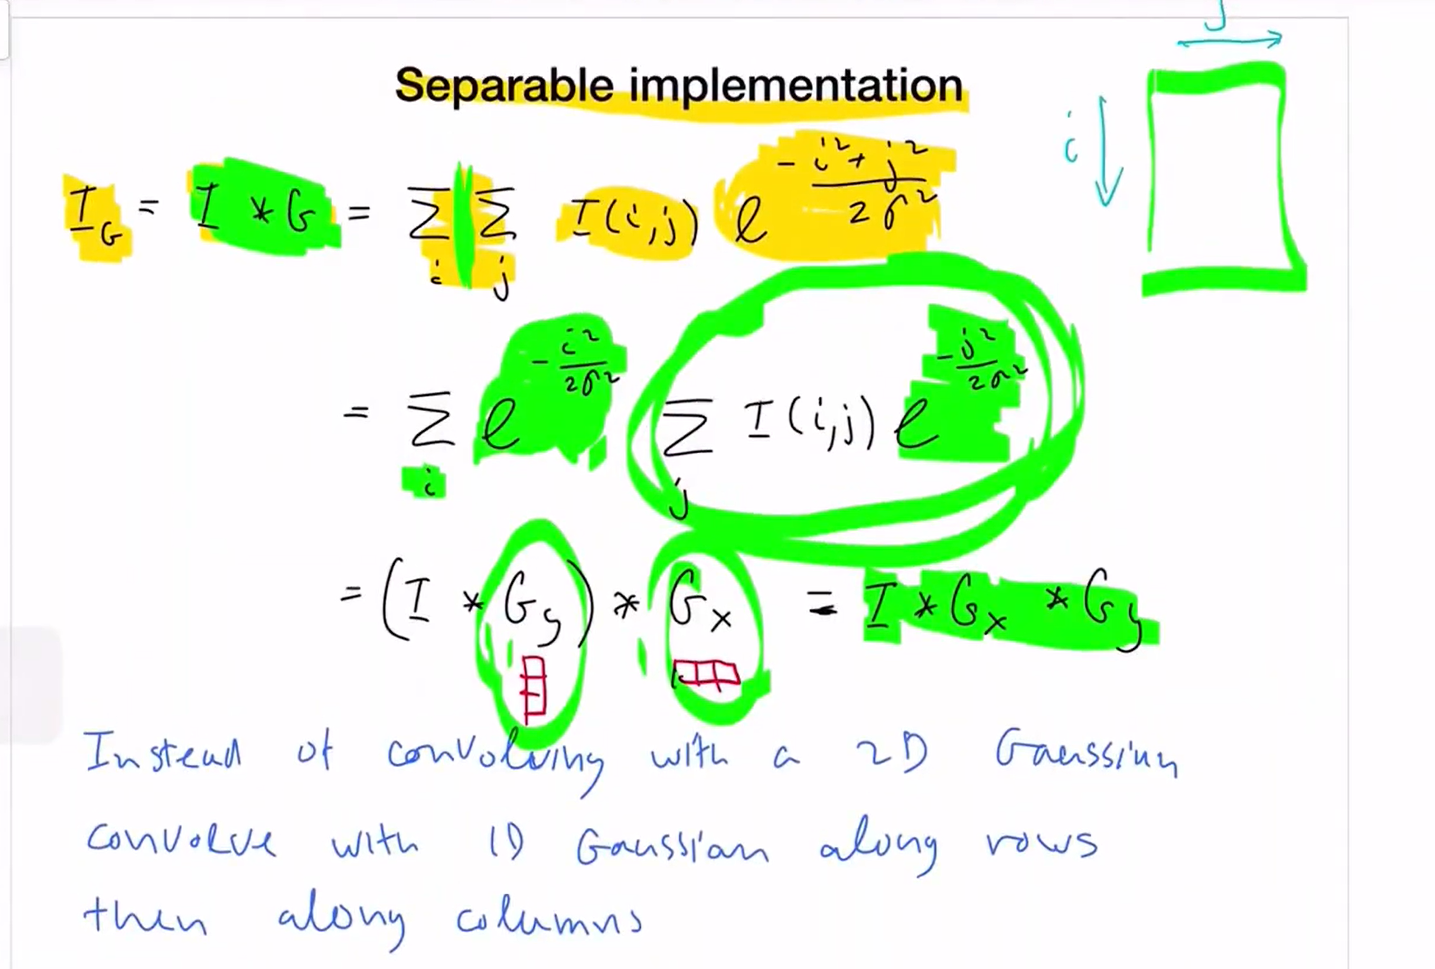 j
Separable implementation
i
I_G = I * G = Σ_i Σ_j I(i,j) e^{-\frac{i²+j²}{2σ²}}
= Σ_i e^{-\frac{i²}{2σ²}} Σ_j I(i,j) e^{-\frac{j²}{2σ²}}
= (I * G_y) * G_x = I * G_x * G_y
Instead of convolving with a 2D Gaussian
convolve with 1D Gaussian along rows
then along columns